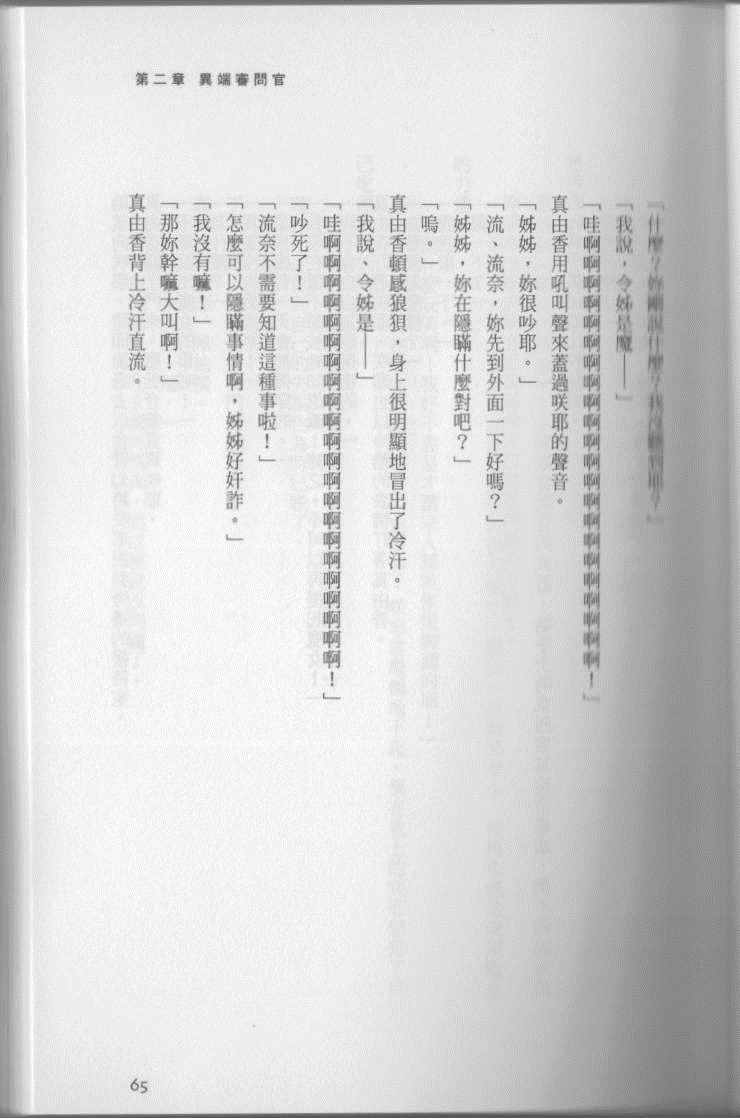 第二章 異端審問官
「什麼？妳剛說什麼？我沒聽到耶？」
「我說，令姊是魔——」
「哇啊啊啊啊啊啊啊啊啊啊啊啊啊啊啊啊啊啊啊啊啊啊！」
真由香用吼叫聲來蓋過咲耶的聲音。
「姊姊，妳很吵耶。」
「流、流奈，妳先到外面一下好嗎？」
「姊姊，妳在隱瞞什麼對吧？」
「嗚。」
真由香頓感狼狽，身上很明顯地冒出了冷汗。
「我說、令姊是——」
「哇啊啊啊啊啊啊啊啊啊啊啊啊啊啊啊啊啊啊啊啊啊啊！」
「吵死了！」
「流奈不需要知道這種事啦！」
「怎麼可以隱瞞事情啊，姊姊好奸詐。」
「我沒有嘛！」
「那妳幹嘛大叫啊！」
真由香背上冷汗直流。
65